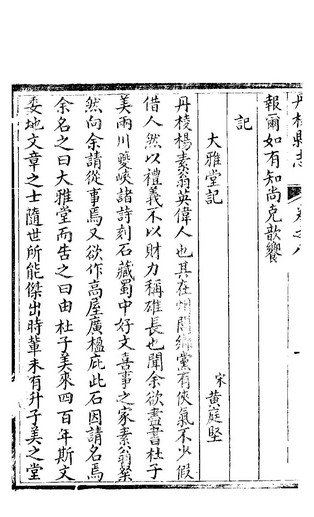 丹棱縣志
卷之八
報爾如有知尚克歆饗
記
大雅堂記
宋 黃庭堅
丹棱楊素翁英偉人也其在州閭鄉黨有俠氣不少假
借人然以禮義不以財力稱雄長也聞余欲盡書杜子
美兩川夔峽諸詩刻石藏蜀中好文喜事之家素翁粲
然向余請從事焉又欲作高屋廣楹庇此石因請名焉
余名之曰大雅堂而告之曰由杜子美來四百年斯文
委地文章之士隨世所能傑出時輩未有升子美之堂